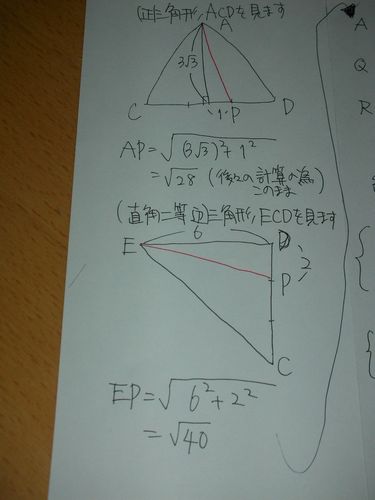 (正)三角形,ACDを見ます
A
3√3
C
1
P
D
AP=√(3√3)²+1²
=√28 (後々の計算の為このまま)
(直角二等辺)三角形,ECDを見ます
6
E
D
2
P
C
EP=√6²+2²
=√40
A
Q
R